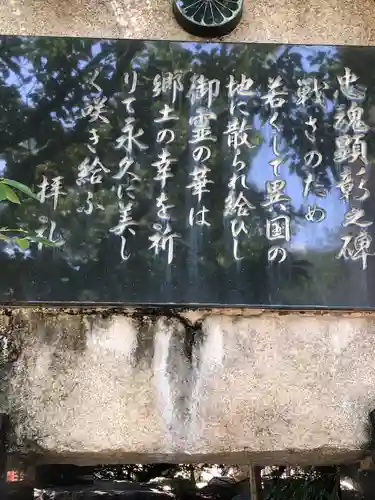 忠魂顕彰之碑
戦さのため
若くして異国の
地に散られ給ひし
御霊の華は
郷土の幸を祈
りて永久に美し
く咲き給ふ
拝礼